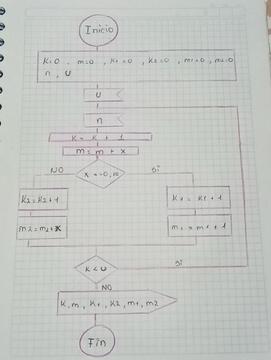 Inicio
K=0, m=0, K1=0, K2=0, m1=0, m2=0
n, U
U
n
K = K + 1
m = m + x
NO
Si
K2=K2+1
K1 = K1 + 1
K<U
Si
NO
K, m, K1, K2, m1, m2
Fin